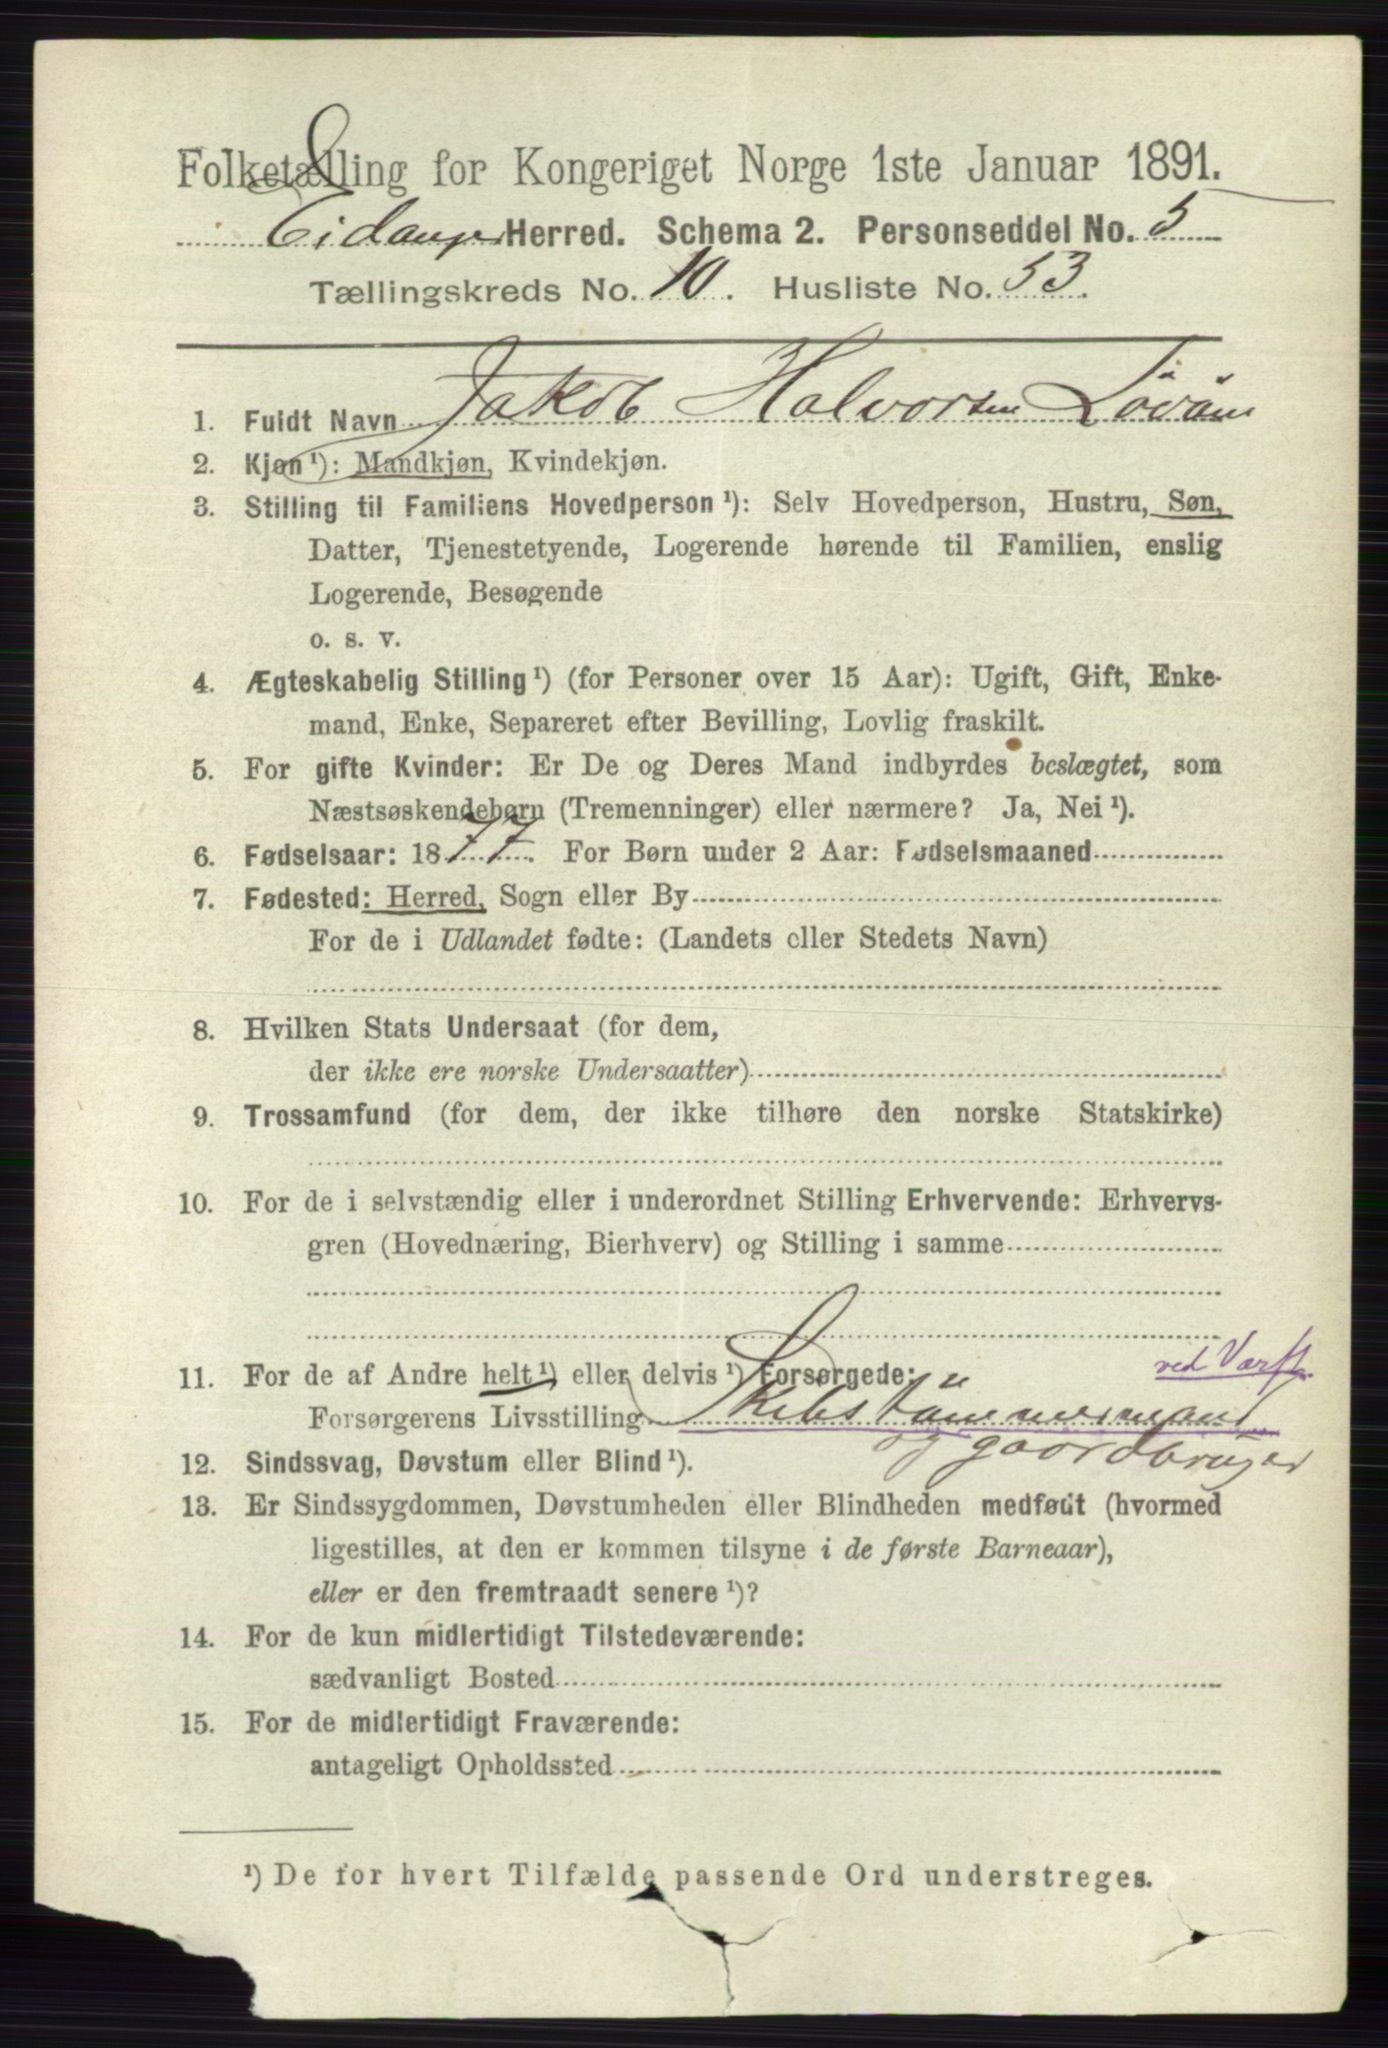 Folketælling for Kongeriget Norge 1ste Januar 1891.
Eidanger Herred. Schema 2. Personseddel No. 5
Tællingskreds No. 10. Husliste No. 53.
1. Fuldt Navn Jakob Halvorsen
2. Kjøn ¹): Mandkjøn, Kvindekjøn.
3. Stilling til Familiens Hovedperson ¹): Selv Hovedperson, Hustru, Søn,
Datter, Tjenestetyende, Logerende hørende til Familien, enslig
Logerende, Besøgende
o. s. v.
4. Ægteskabelig Stilling ¹) (for Personer over 15 Aar): Ugift, Gift, Enke-
mand, Enke, Separeret efter Bevilling, Lovlig fraskilt.
5. For gifte Kvinder: Er De og Deres Mand indbyrdes beslægtet, som
Næstsøskendebørn (Tremenninger) eller nærmere? Ja, Nei ¹).
6. Fødselsaar: 1877. For Børn under 2 Aar: Fødselsmaaned
7. Fødested: Herred, Sogn eller By
For de i Udlandet fødte: (Landets eller Stedets Navn)
8. Hvilken Stats Undersaat (for dem,
der ikke ere norske Undersaatter)
9. Trossamfund (for dem, der ikke tilhøre den norske Statskirke)
10. For de i selvstændig eller i underordnet Stilling Erhvervende: Erhvervs-
gren (Hovednæring, Bierhverv) og Stilling i samme
ved Værft.
11. For de af Andre helt ¹) eller delvis ¹) Forsørgede:
Forsørgerens Livsstilling Skibstømmermand
og gaardbruger
12. Sindssvag, Døvstum eller Blind ¹).
13. Er Sindssygdommen, Døvstumheden eller Blindheden medfødt (hvormed
ligestilles, at den er kommen tilsyne i de første Barneaar),
eller er den fremtraadt senere ¹)?
14. For de kun midlertidigt Tilstedeværende:
sædvanligt Bosted
15. For de midlertidigt Fraværende:
antageligt Opholdssted
¹) De for hvert Tilfælde passende Ord understreges.